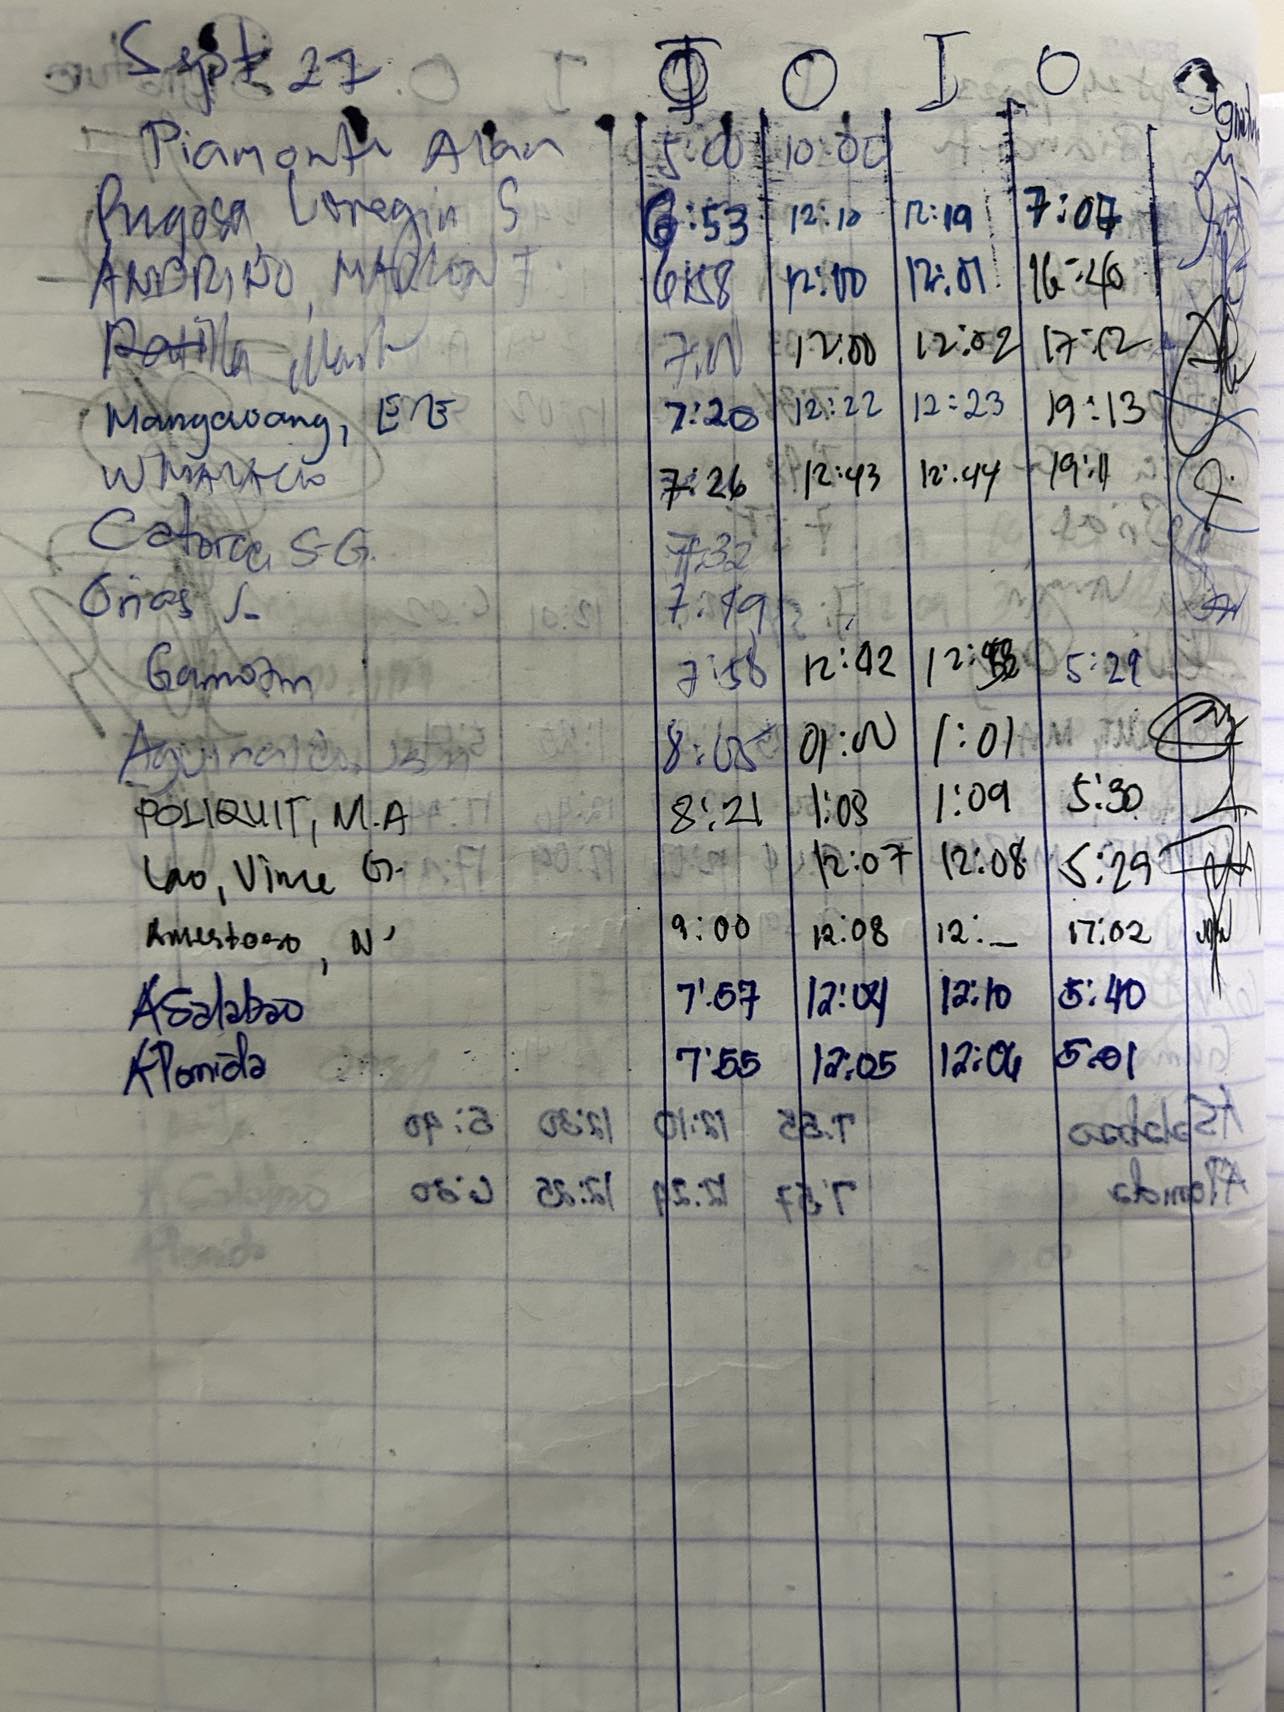 Sept 27 I O I O Signature
Piamonte Alan 5:00 10:00
Pugosa, Loregin S 6:53 12:10 12:19 7:07
ANDRINO, MARLON F 6:58 12:00 12:01 16:40
Patilla 7:00 12:00 12:02 17:12
Mangawang, 7:20 12:22 12:23 19:13
7:26 12:43 12:44 19:11
Catorce, S.G. 7:32
Orias J. 7:49
7:58 12:42 5:29
8:05 01:00 1:01
POLIQUIT, M.A 8:21 1:08 1:09 5:30
Lao, Vince G. 12:07 12:08 5:29
Amestoso, N 9:00 12:08 12:_ 17:02
ASalabao 7:57 12:04 12:10 5:40
APonida 7:55 12:05 12:06 5:01